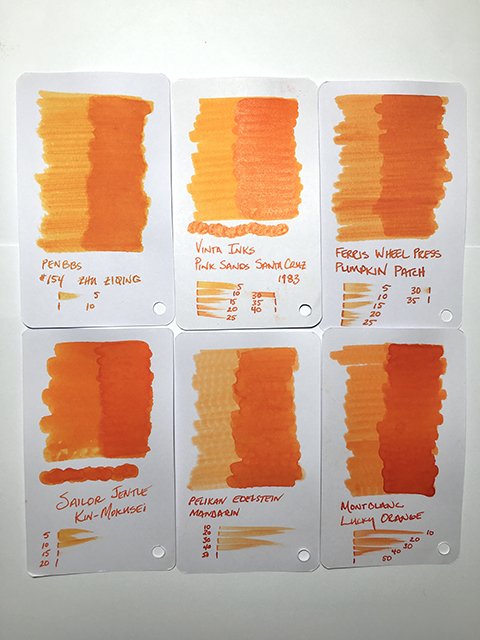 PENBBS
#154 ZHU ZIQING
5
10
VINTA INKS
PINK SANDS SANTA CRUZ
1983
5
10 30
15 35
20 40
25
FERRIS WHEEL PRESS
PUMPKIN PATCH
5 30
10 35
15
20
25
SAILOR JENTLE
KIN-MOKUSEI
5
10
15
20
PELIKAN EDELSTEIN
MANDARIN
10
20
30
40
50
MONTBLANC
LUCKY ORANGE
10
20
30
40
50